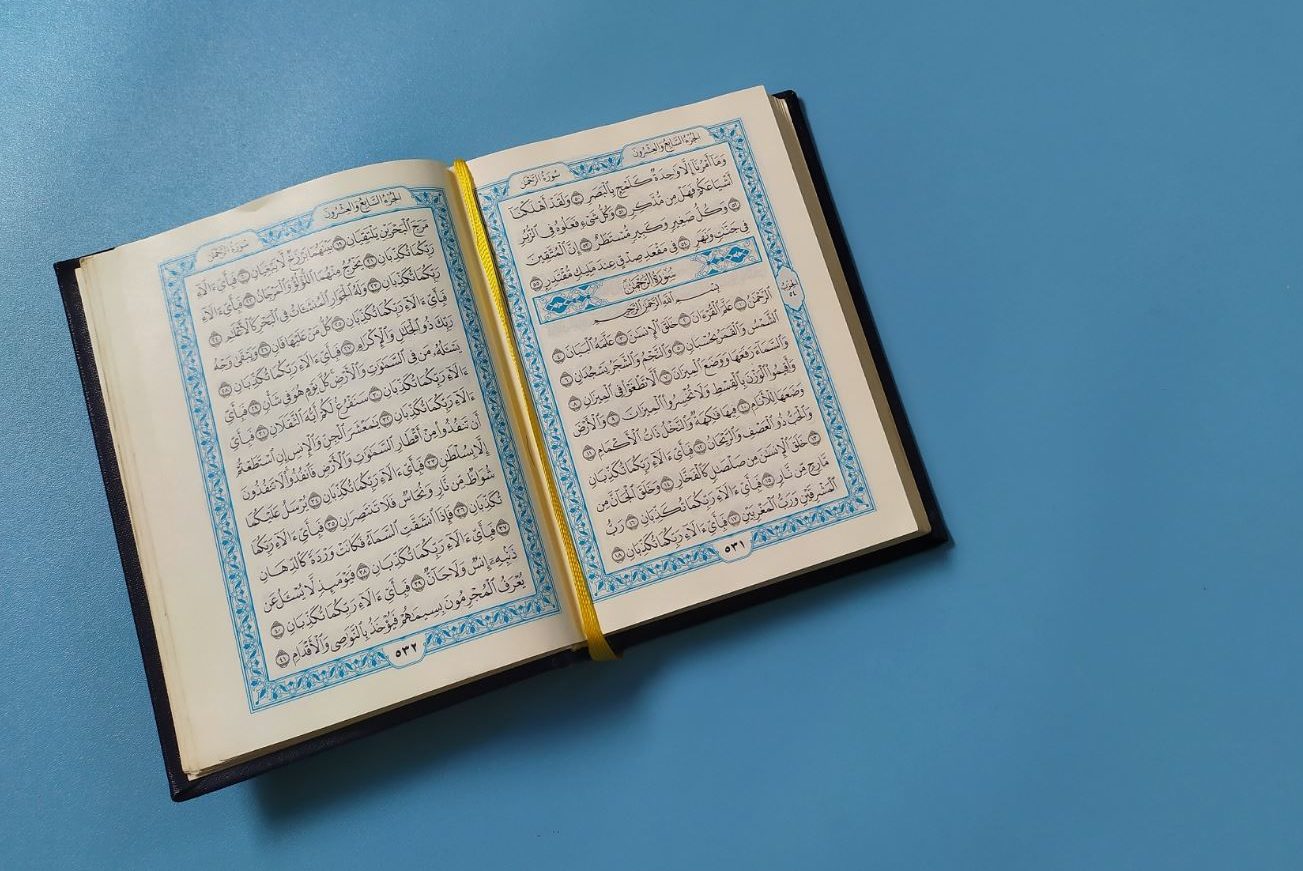 الجُزْءُ السَّابِعُ وَالعِشْرُونَ
سُورَةُ الرَّحْمٰن
وَمَآ أَمْرُنَآ إِلَّا وَٰحِدَةٌ كَلَمْحٍۭ بِٱلْبَصَرِ ٥٠ وَلَقَدْ أَهْلَكْنَآ
أَشْيَاعَكُمْ فَهَلْ مِن مُّدَّكِرٍ ٥١ وَكُلُّ شَىْءٍ فَعَلُوهُ فِى ٱلزُّبُرِ
٥٢ وَكُلُّ صَغِيرٍ وَكَبِيرٍ مُّسْتَطَرٌ ٥٣ إِنَّ ٱلْمُتَّقِينَ
فِى جَنَّٰتٍ وَنَهَرٍ ٥٤ فِى مَقْعَدِ صِدْقٍ عِندَ مَلِيكٍ مُّقْتَدِرٍۭ ٥٥
سُورَةُ الرَّحْمٰن
بِسْمِ ٱللَّهِ ٱلرَّحْمَٰنِ ٱلرَّحِيمِ
ٱلرَّحْمَٰنُ ١ عَلَّمَ ٱلْقُرْءَانَ ٢ خَلَقَ ٱلْإِنسَٰنَ ٣ عَلَّمَهُ ٱلْبَيَانَ ٤
ٱلشَّمْسُ وَٱلْقَمَرُ بِحُسْبَانٍ ٥ وَٱلنَّجْمُ وَٱلشَّجَرُ يَسْجُدَانِ ٦
وَٱلسَّمَآءَ رَفَعَهَا وَوَضَعَ ٱلْمِيزَانَ ٧ أَلَّا تَطْغَوْا۟ فِى ٱلْمِيزَانِ ٨
وَأَقِيمُوا۟ ٱلْوَزْنَ بِٱلْقِسْطِ وَلَا تُخْسِرُوا۟ ٱلْمِيزَانَ ٩ وَٱلْأَرْضَ
وَضَعَهَا لِلْأَنَامِ ١٠ فِيهَا فَٰكِهَةٌ وَٱلنَّخْلُ ذَاتُ ٱلْأَكْمَامِ ١١
وَٱلْحَبُّ ذُو ٱلْعَصْفِ وَٱلرَّيْحَانُ ١٢ فَبِأَىِّ ءَالَآءِ رَبِّكُمَا تُكَذِّبَانِ
١٣ خَلَقَ ٱلْإِنسَٰنَ مِن صَلْصَٰلٍ كَٱلْفَخَّارِ ١٤ وَخَلَقَ ٱلْجَآنَّ مِن
مَّارِجٍ مِّن نَّارٍ ١٥ فَبِأَىِّ ءَالَآءِ رَبِّكُمَا تُكَذِّبَانِ ١٦ رَبُّ
ٱلْمَشْرِقَيْنِ وَرَبُّ ٱلْمَغْرِبَيْنِ ١٧ فَبِأَىِّ ءَالَآءِ رَبِّكُمَا تُكَذِّبَانِ ١٨
٥٣١
الجُزْءُ السَّابِعُ وَالعِشْرُونَ
سُورَةُ الرَّحْمٰن
مَرَجَ ٱلْبَحْرَيْنِ يَلْتَقِيَانِ ١٩ بَيْنَهُمَا بَرْزَخٌ لَّا يَبْغِيَانِ ٢٠ فَبِأَىِّ ءَالَآءِ
رَبِّكُمَا تُكَذِّبَانِ ٢١ يَخْرُجُ مِنْهُمَا ٱللُّؤْلُؤُ وَٱلْمَرْجَانُ ٢٢ فَبِأَىِّ ءَالَآءِ
رَبِّكُمَا تُكَذِّبَانِ ٢٣ وَلَهُ ٱلْجَوَارِ ٱلْمُنشَـَٔاتُ فِى ٱلْبَحْرِ كَٱلْأَعْلَٰمِ ٢٤
فَبِأَىِّ ءَالَآءِ رَبِّكُمَا تُكَذِّبَانِ ٢٥ كُلُّ مَنْ عَلَيْهَا فَانٍ ٢٦ وَيَبْقَىٰ وَجْهُ
رَبِّكَ ذُو ٱلْجَلَٰلِ وَٱلْإِكْرَامِ ٢٧ فَبِأَىِّ ءَالَآءِ رَبِّكُمَا تُكَذِّبَانِ ٢٨
يَسْـَٔلُهُۥ مَن فِى ٱلسَّمَٰوَٰتِ وَٱلْأَرْضِ كُلَّ يَوْمٍ هُوَ فِى شَأْنٍ ٢٩ فَبِأَىِّ
ءَالَآءِ رَبِّكُمَا تُكَذِّبَانِ ٣٠ سَنَفْرُغُ لَكُمْ أَيُّهَ ٱلثَّقَلَانِ ٣١ فَبِأَىِّ
ءَالَآءِ رَبِّكُمَا تُكَذِّبَانِ ٣٢ يَٰمَعْشَرَ ٱلْجِنِّ وَٱلْإِنسِ إِنِ ٱسْتَطَعْتُمْ
أَن تَنفُذُوا۟ مِنْ أَقْطَارِ ٱلسَّمَٰوَٰتِ وَٱلْأَرْضِ فَٱنفُذُوا۟ لَا تَنفُذُونَ
إِلَّا بِسُلْطَٰنٍ ٣٣ فَبِأَىِّ ءَالَآءِ رَبِّكُمَا تُكَذِّبَانِ ٣٤ يُرْسَلُ عَلَيْكُمَا
شُوَاظٌ مِّن نَّارٍ وَنُحَاسٌ فَلَا تَنتَصِرَانِ ٣٥ فَبِأَىِّ ءَالَآءِ رَبِّكُمَا
تُكَذِّبَانِ ٣٦ فَإِذَا ٱنشَقَّتِ ٱلسَّمَآءُ فَكَانَتْ وَرْدَةً كَٱلدِّهَانِ
٣٧ فَبِأَىِّ ءَالَآءِ رَبِّكُمَا تُكَذِّبَانِ ٣٨ فَيَوْمَئِذٍ لَّا يُسْـَٔلُ عَن
ذَنۢبِهِۦٓ إِنسٌ وَلَا جَآنٌّ ٣٩ فَبِأَىِّ ءَالَآءِ رَبِّكُمَا تُكَذِّبَانِ ٤٠
يُعْرَفُ ٱلْمُجْرِمُونَ بِسِيمَٰهُمْ فَيُؤْخَذُ بِٱلنَّوَٰصِى وَٱلْأَقْدَامِ ٤١
٥٣٢